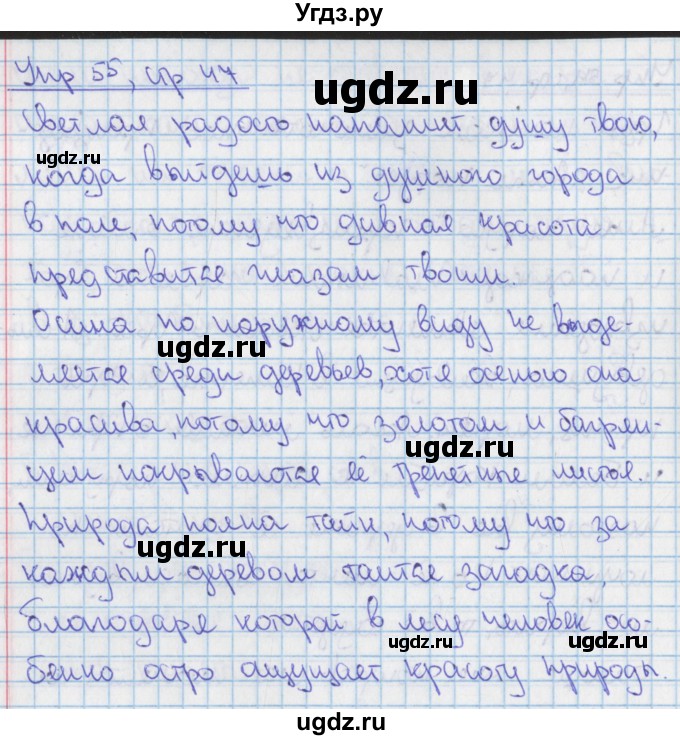 Угдз.ру
Упр 55, стр 47
ugdz.ru
Светлая радость напалнит душу твою,
ugdz.ru
когда выйдешь из душного города
в поле, потому что дивная красота
представится глазам твоим.
Осина по наружному виду не выде-
ugdz.ru
ляется среди деревьев, хотя осенью она
красива, потому что золотом и багрян-
ugdz.ru
цем покрываются её трепетные листья.
Природа полна тайн, потому что за
ugdz.ru
каждым деревом таится загадка,
благодаря которой в лесу человек осо-
ugdz.ru
ugdz.ru
бенно остро ощущает красоту природы.
ugdz.ru